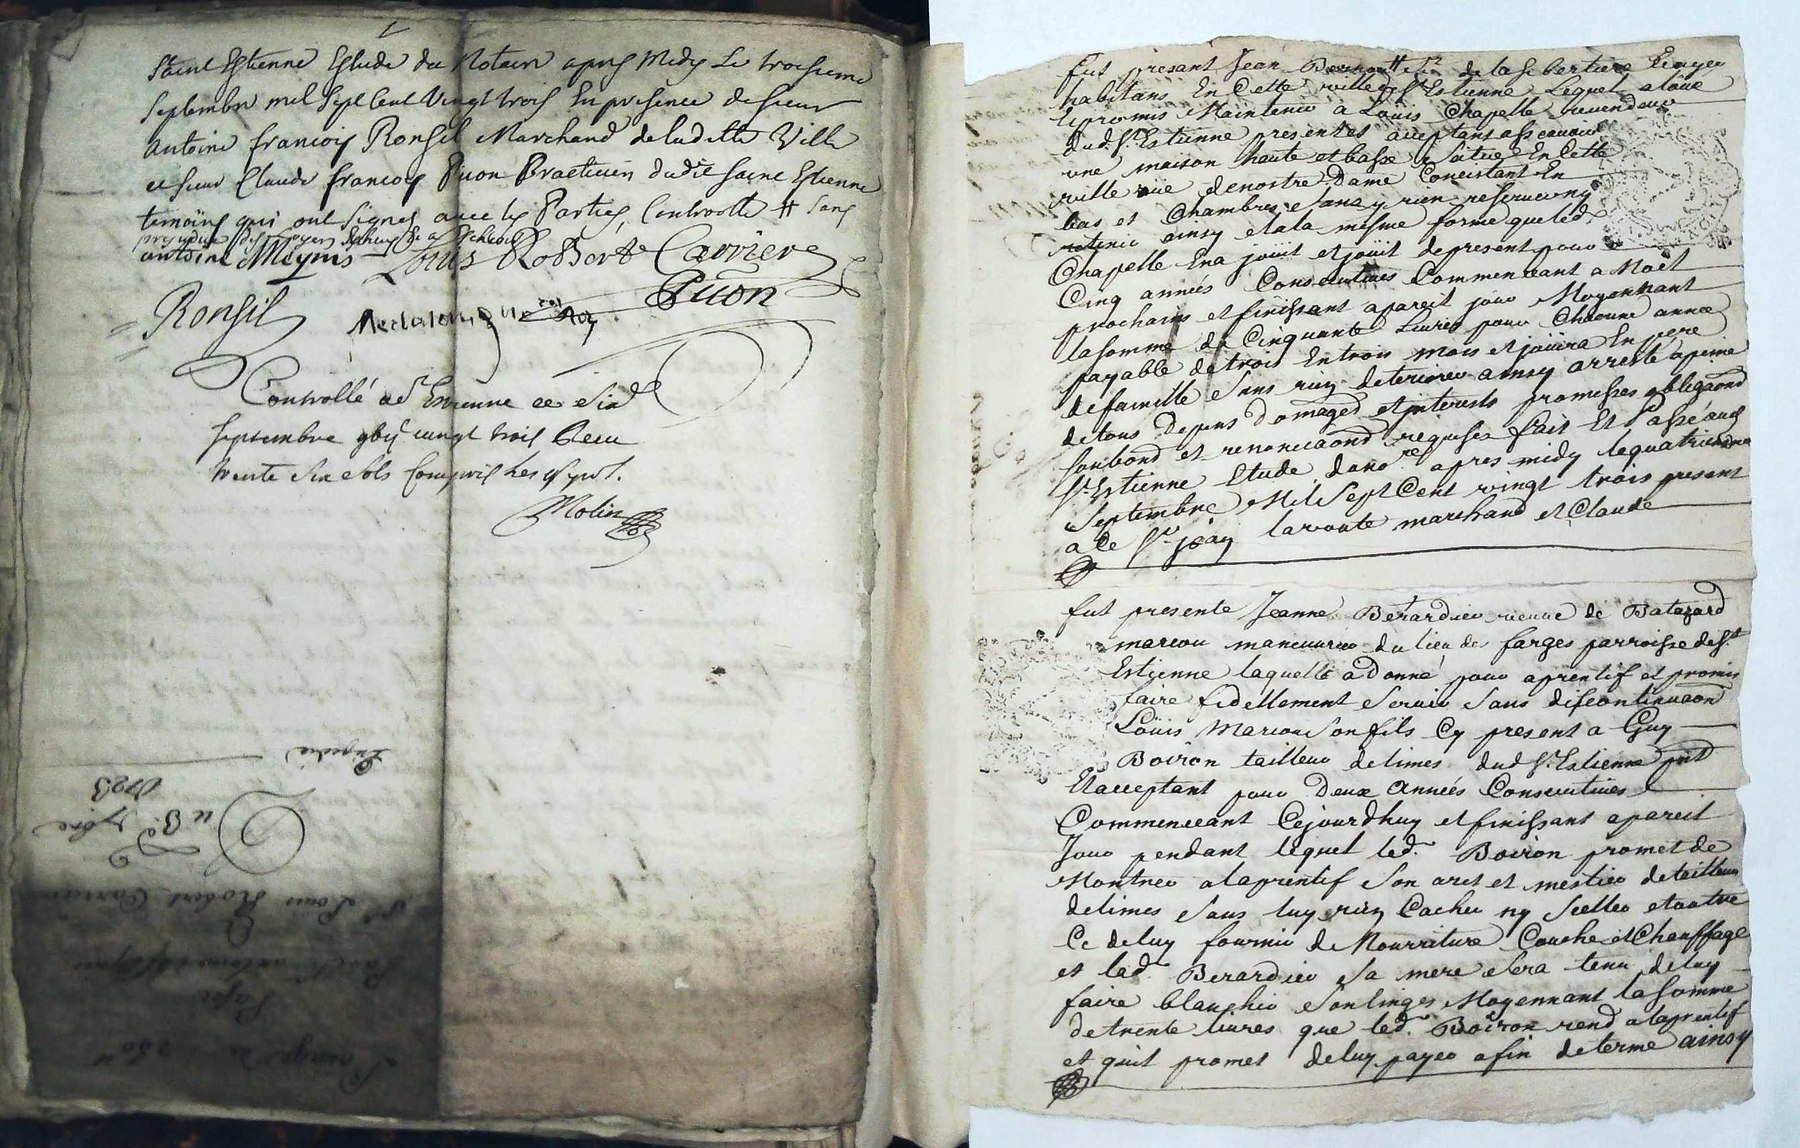 Saint Estienne Estude du Notaire apres Midy Le troisieme
Septembre mil sept Cent Vingt trois En presence de sieur
Antoine francois Ronsil Marchand de laditte Ville
et sieur Claude francois Puon Praticien dudit saint Estienne
temoins qui ont signez avec les Parties, Controlle # sans
antoine Meynis Louis Robert Carrier
Puon
Ronsil
Controllé a St Etienne ce six
septembre vingt trois Receu
trente six sols
Molin
fut présant Jean de la sibertiere
habitans En Cette ville St Estienne Lequel a loüé
et promis Maintenir a Loüis Chapelle revendeur
dud. St Estienne present et acceptant assavoir
une maison haute et basse située En Cette
ville rüe de nostre Dame Concistant En
bas et Chambres sans y rien reserver ny
retenir ainsy et a la mesme forme que led.
Chapelle En a jouit et jouit de present pour
Cinq années Consecutives Commenceant a Noël
prochain et finissant a pareil jour Moyennant
la somme de Cinquante Livres pour Chacune année
payable de trois En trois mois et jouira En pere
de famille sans rien deteriorer ainsy arresté a peine
de tous depens domages et interests promesses obligaond
soubond et renonciaond requises fait Et Passé aud
St Estienne Etude dud no.re apres midy le quatrieme
Septembre Mil Sept Cent vingt trois present
a Ce Sr jean laroute marchand et Claude
fut presente Jeanne Berardier vieuve de Batezard
marcou maneuvrier du lieu de farges parroisse de St
Estienne laquelle a donné pour aprentif et promis
faire fidellement servir sans discontinuaon
Loüis Marcou son fils Cy present a Guy
Boiron tailleur de limes dud St Estienne pnt
Et acceptant pour Deux Années Consecutives
Commenceant Cejourdhuy et finissant a pareil
Jour pendant lequel led. Boiron promet de
Montrer a laprentif son art et mestier de tailleur
de limes sans luy rien Cacher ny Celler et outre
Ce de luy fournir de Nourriture Couche et Chauffage
et lad. Berardier sa mere sera tenu de luy
faire blanchir son linges Moyennant la somme
de trente livres que led. Boiron rend a laprentif
et quil promet de luy payer a fin de terme ainsy
Du 3e 7bre
1723
Sr Louis Robert Carrier